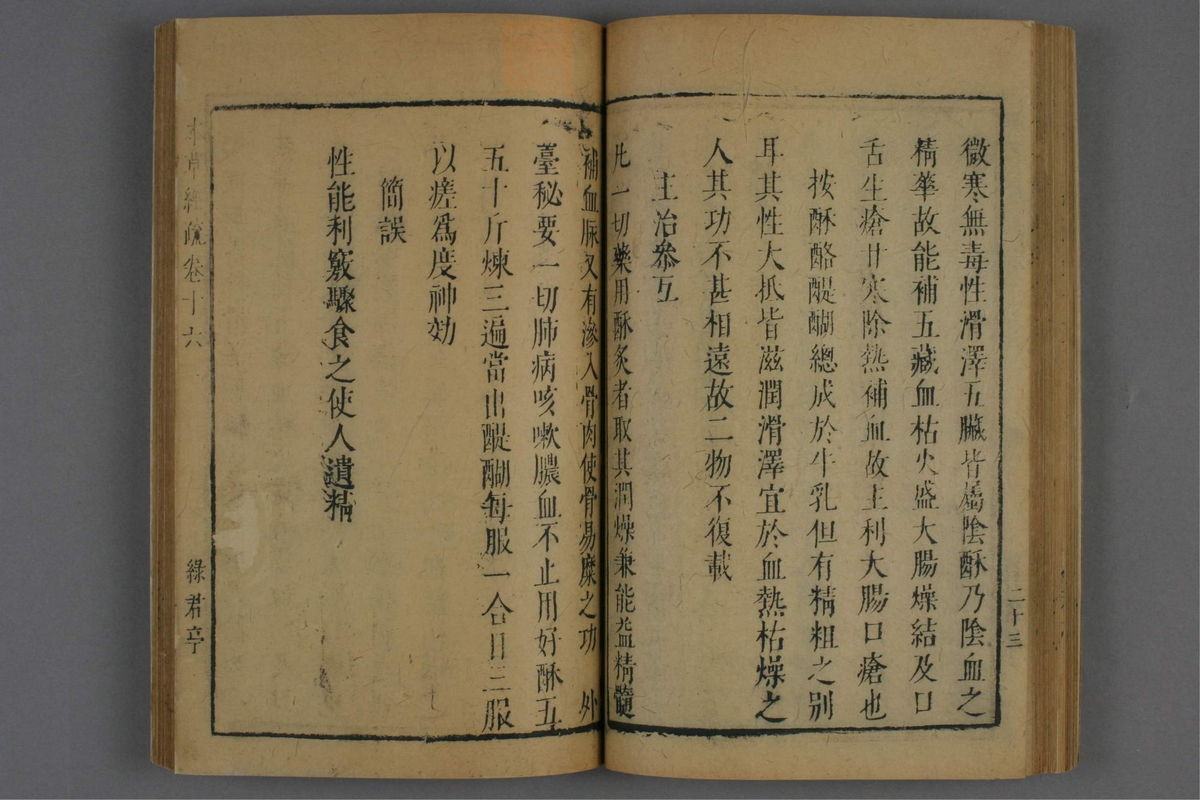 微寒無毒性滑澤五臟皆屬陰酥乃陰血之
精華故能補五藏血枯火盛大腸燥結及口
舌生瘡甘寒除熱補血故主利大腸口瘡也
按酥酪醍醐總成於牛乳但有精粗之別
耳其性大抵皆滋潤滑澤宜於血熱枯燥之
人其功不甚相遠故二物不復載
主治叅互
凡一切藥用酥炙者取其潤燥兼能益精髓
補血脉又有滲入骨肉使骨易糜之功 外
臺秘要一切肺病咳嗽膿血不止用好酥五
五十斤煉三遍當出醍醐每服一合日三服
以瘥爲度神効
簡誤
性能利竅驟食之使人遺精
二十三
本草經疏卷十六
綠君亭